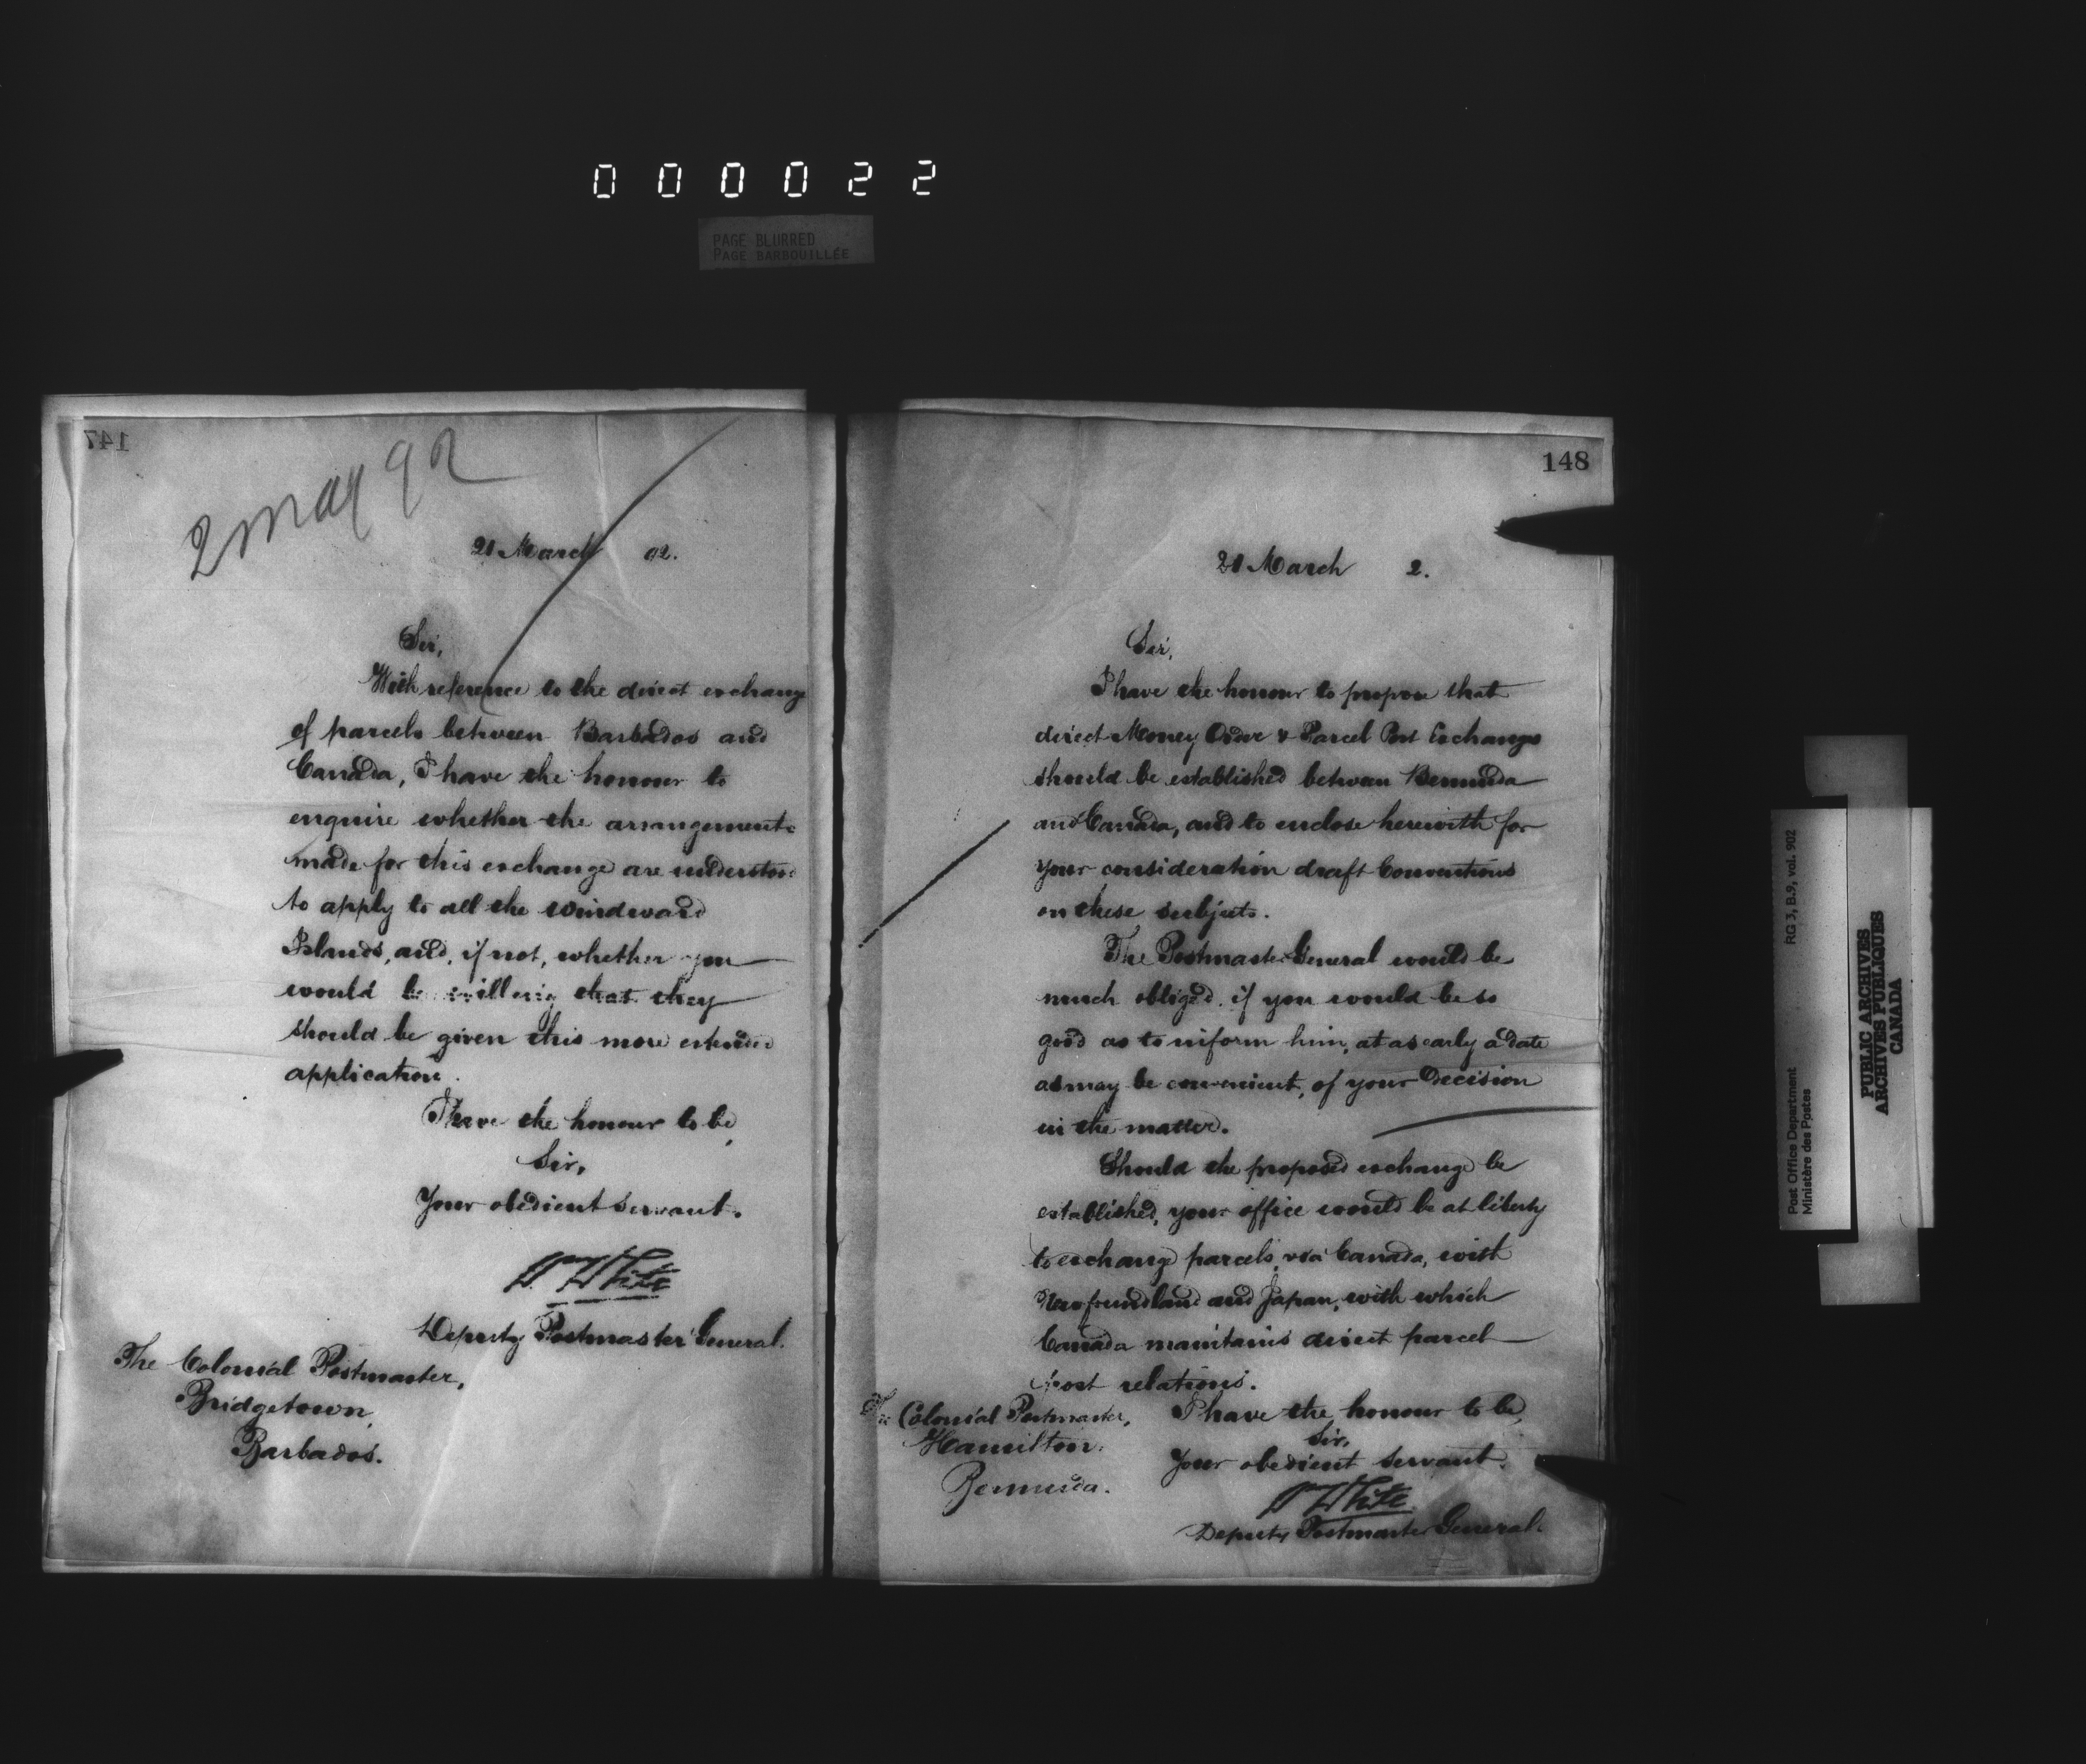 0 0 0 0 2 2
PAGE BLURRED
PAGE BARBOUILLÉE
147
2 May 92
21 March 92.
Sir,
With reference to the direct exchange
of parcels between Barbados and
Canada, I have the honour to
enquire whether the arrangements
made for this exchange are understood
to apply to all the Windward
Islands, and, if not, whether you
would be willing that they
should be given this more extended
application.
I have the honour to be,
Sir,
Your obedient servant.
W White
Deputy Postmaster General.
The Colonial Postmaster,
Bridgetown,
Barbados.
148
21 March 2.
Sir,
I have the honour to propose that
direct Money Order & Parcel Post Exchange
should be established between Bermuda
and Canada, and to enclose herewith for
your consideration draft Conventions
on these subjects.
The Postmaster General would be
much obliged if you would be so
good as to inform him, at as early a date
as may be convenient, of your decision
in the matter.
Should the proposed exchange be
established, your office would be at liberty
to exchange parcels, via Canada, with
Newfoundland and Japan, with which
Canada maintains direct parcel
post relations.
I have the honour to be,
Sir,
Your obedient servant.
W White
Deputy Postmaster General.
The Colonial Postmaster,
Hamilton.
Bermuda.
Post Office Department RG 3, B.9, vol. 902
Ministère des Postes
PUBLIC ARCHIVES
ARCHIVES PUBLIQUES
CANADA